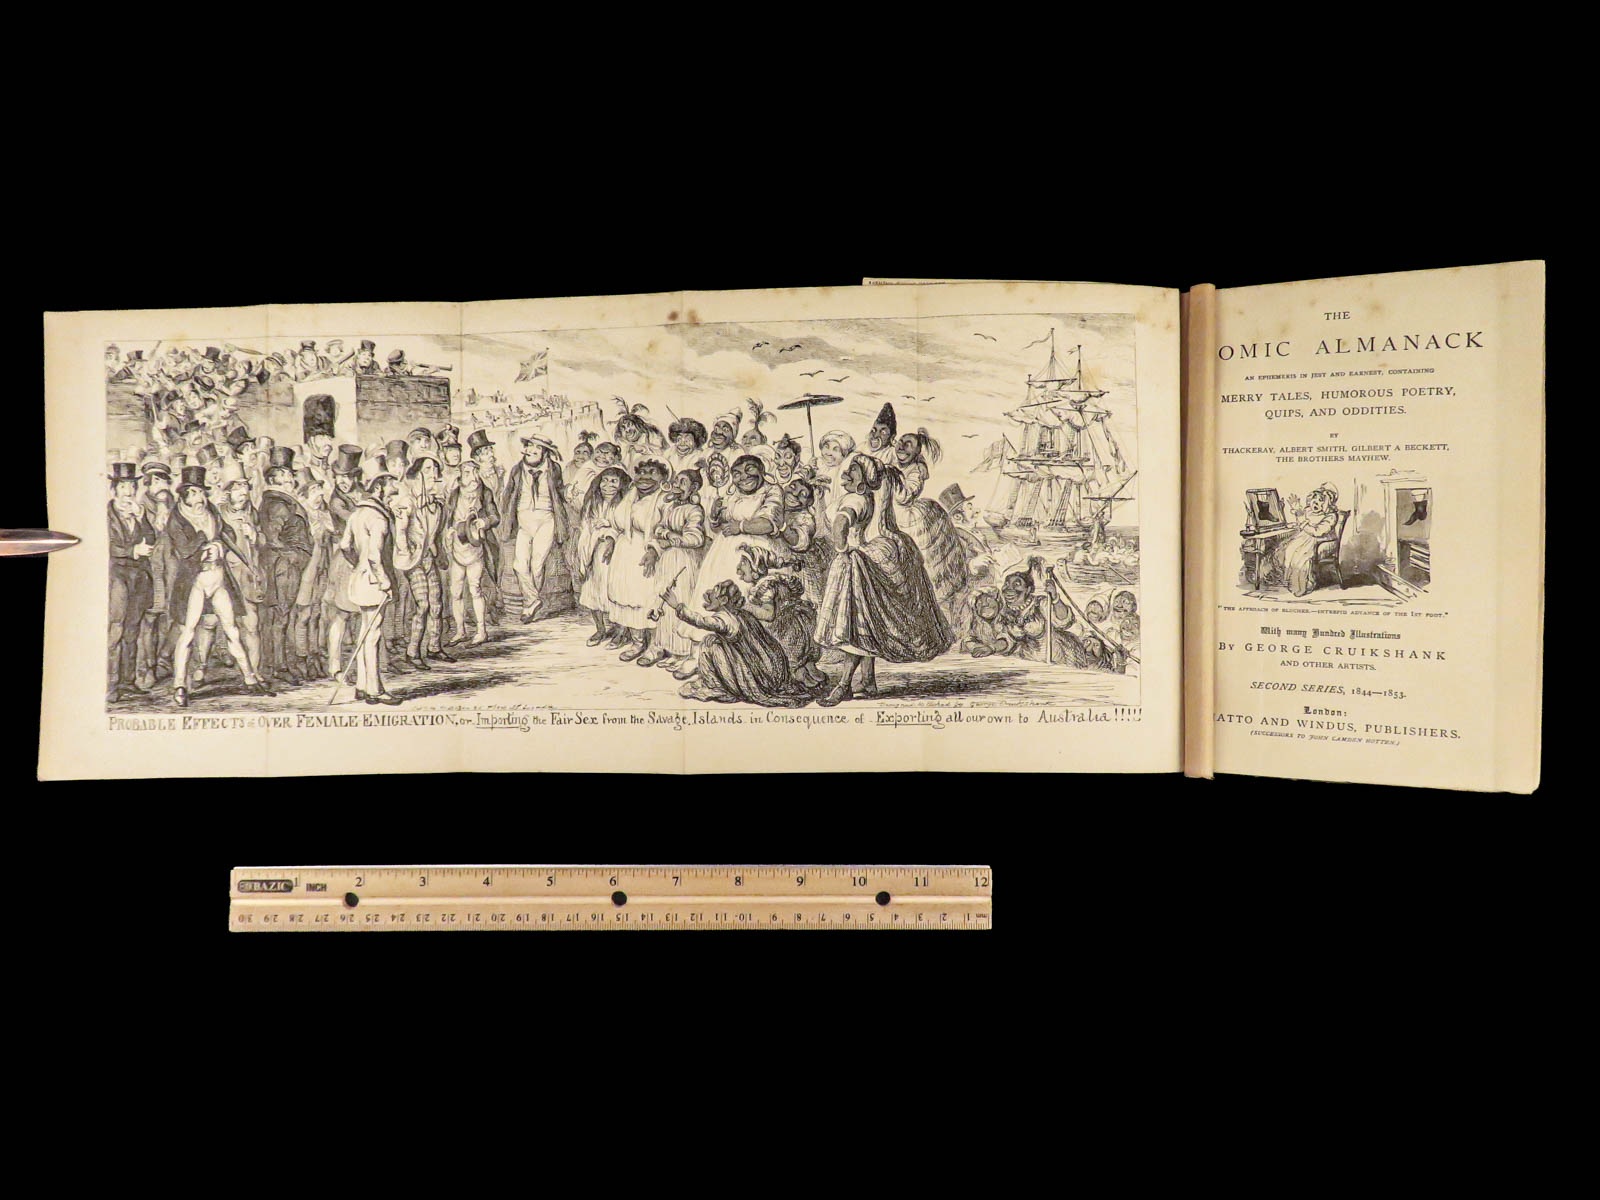 PROBABLE EFFECTS of OVER FEMALE EMIGRATION, or Importing the Fair Sex from the Savage Islands in Consequence of Exporting all our own to Australia!!!!!
Designed & Etched by George Cruikshank
THE
OMIC ALMANACK
AN EPHEMERIS IN JEST AND EARNEST, CONTAINING
MERRY TALES, HUMOROUS POETRY,
QUIPS, AND ODDITIES.
BY
THACKERAY, ALBERT SMITH, GILBERT A BECKETT,
THE BROTHERS MAYHEW.
"THE APPROACH OF BLUCHER.—INTREPID ADVANCE OF THE 1ST FOOT."
With many Hundred Illustrations
BY GEORGE CRUIKSHANK
AND OTHER ARTISTS.
SECOND SERIES, 1844—1853.
London:
ATTO AND WINDUS, PUBLISHERS.
(SUCCESSORS TO JOHN CAMDEN HOTTEN.)
BAZIC 1 INCH 2 3 4 5 6 7 8 9 10 11 12
30 29 28 27 26 25 24 23 22 21 20 19 18 17 16 15 14 13 12 11 10 9 8 7 6 5 4 3 2 1 mm